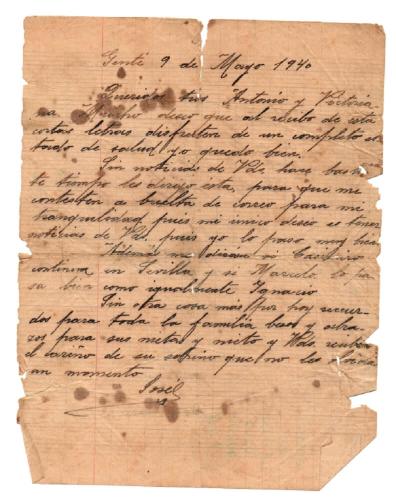 9 de Mayo 1940
Queridos tios Antonio y Victoria
na Mucho deseo que al recibo de esta
cortas letras disfruten de un completo es
tado de salud yo quedo bien.
Sin noticias de Vds. hace bast
te tiempo les dirijo esta, para que me
contesten a buelta de correo para mi
tranquilidad pues mi unico deseo es tener
noticias de Vds. pues yo lo paso muy bien
Ademas me diran si Casimiro
continua en Sevilla y si Marcelo lo pa
sa bien como igualmente Ignacio
Sin otra cosa mas por hoy recuer
dos para toda la familia besos y abra
zos para sus netas y nieto y Vds. reciben
el cariño de su sobrino que no les olvida
un momento
José